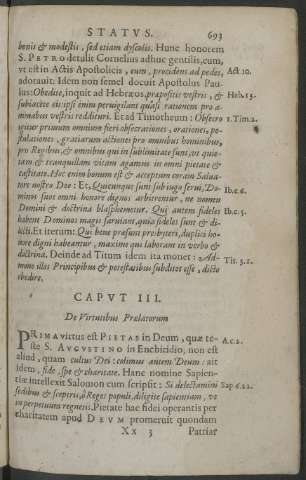 STATVS. 693
bonis & modestis, sed etiam dyscolis. Hunc honorem
S. PETRO detulit Cornelius adhuc gentilis, cum,
vt est in Actis Apostolicis, eum, procidens ad pedes, Act. 10.
adorauit. Idem non semel docuit Apostolus Pau-
lus: Obedite, inquit ad Hebræos, præpositis vestris, & Heb. 13.
subiacete eis: ipsi enim peruigilant quasi rationem pro a-
nimabus vestris reddituri. Et ad Timotheum: Obsecro 1. Tim. 2.
igitur primum omnium fieri obsecrationes, orationes, po-
stulationes, gratiarum actiones pro omnibus hominibus,
pro Regibus, & omnibus qui in sublimitate sunt, vt quie-
tam & tranquillam vitam agamus in omni pietate &
castitate. Hoc enim bonum est & acceptum coram Salua-
tore nostro Deo: Et, Quicunque sunt sub iugo serui, Do- Ib. c. 6.
minos suos omni honore dignos arbitrentur, ne nomen
Domini & doctrina blasphemetur. Qui autem fideles Ib. c. 5.
habent Dominos magis seruiant, quia fideles sunt & di-
lecti. Et iterum: Qui bene præsunt presbyteri, duplici ho-
nore digni habeantur, maxime qui laborant in verbo &
doctrina. Deinde ad Titum idem ita monet: Ad- Tit. 3. 1.
mone illos Principibus & potestatibus subditos esse, dicto
obedire.
CAPVT III.
De Virtutibus Prælatorum
PRIMA virtus est PIETAS in Deum, quæ te- A. c. 2.
ste S. AVGVSTINO in Enchiridio, non est
aliud, quam cultus Dei: colimus autem Deum: ait
idem, fide, spe & charitate. Hanc nomine Sapien-
tiæ intellexit Salomon cum scripsit: Si delectamini Sap. 6. 22.
sedibus & sceptris, ô Reges populi, diligite sapientiam, vt
in perpetuum regnetis. Pietate hac fidei operantis per
charitatem apud DEVM promeruit quondam
Xx 3 Patriar